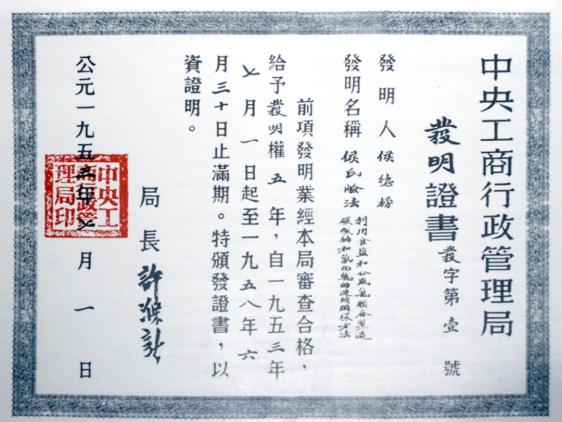 中央工商行政管理局
發明證書
發字第壹號
發明人侯德榜
發明名稱侯氏鹼法
利用食鹽和合成氨聯合製造
碳酸鈉和氯化銨的連續循環方法
前項發明業經本局審查合格，
給予發明權五年，自一九五三年
七月一日起至一九五八年六
月三十日止滿期。特頒發證書，以
資證明。
局長許滌新
公元一九五三年七月一日
中央工商行政管理局印